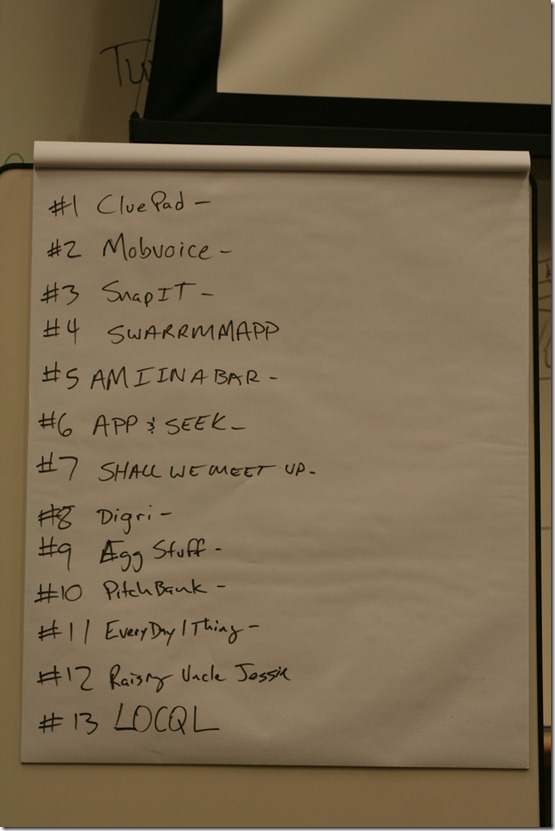 #1 CluePad -
#2 Mobvoice -
#3 SnapIT -
#4 SWARRMMAPP
#5 AM I IN A BAR -
#6 APP & SEEK -
#7 SHALL WE MEET UP -
#8 Digri -
#9 Agg Stuff -
#10 PitchBank -
#11 EveryDay1Thing -
#12 Raising Uncle Jessie
#13 LOCQL